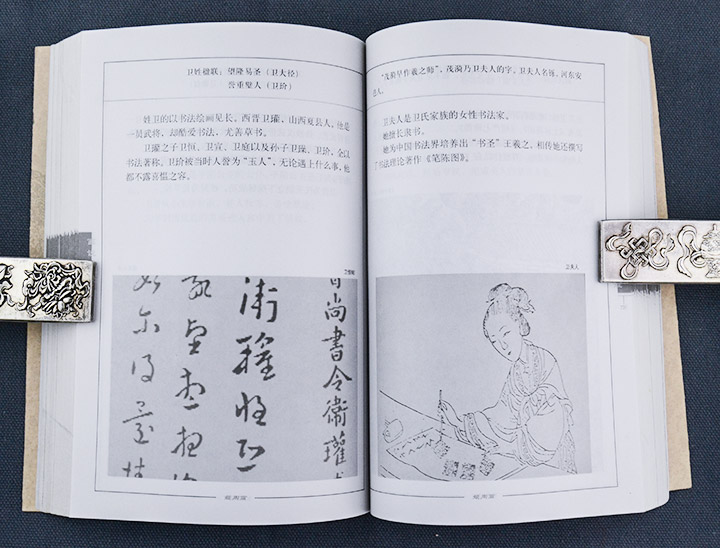 卫姓楹联：望隆易圣（卫大经）
誉重璧人（卫玠）
姓卫的以书法绘画见长。西晋卫瓘，山西夏县人，他是
一员武将，却酷爱书法，尤善草书。
卫瓘之子卫恒、卫宣、卫庭以及孙子卫璪、卫玠，全以
书法著称。卫玠被当时人誉为“玉人”，无论遇上什么事，他
都不露喜愠之容。
尚書令衛瓘
“茂漪早作羲之师”，茂漪乃卫夫人的字，卫夫人名铄，河东安
邑人。
卫夫人是卫氏家族的女性书法家。
她擅长隶书。
她为中国书法界培养出“书圣”王羲之。相传她还撰写
了书法理论著作《笔陈图》。
卫夫人